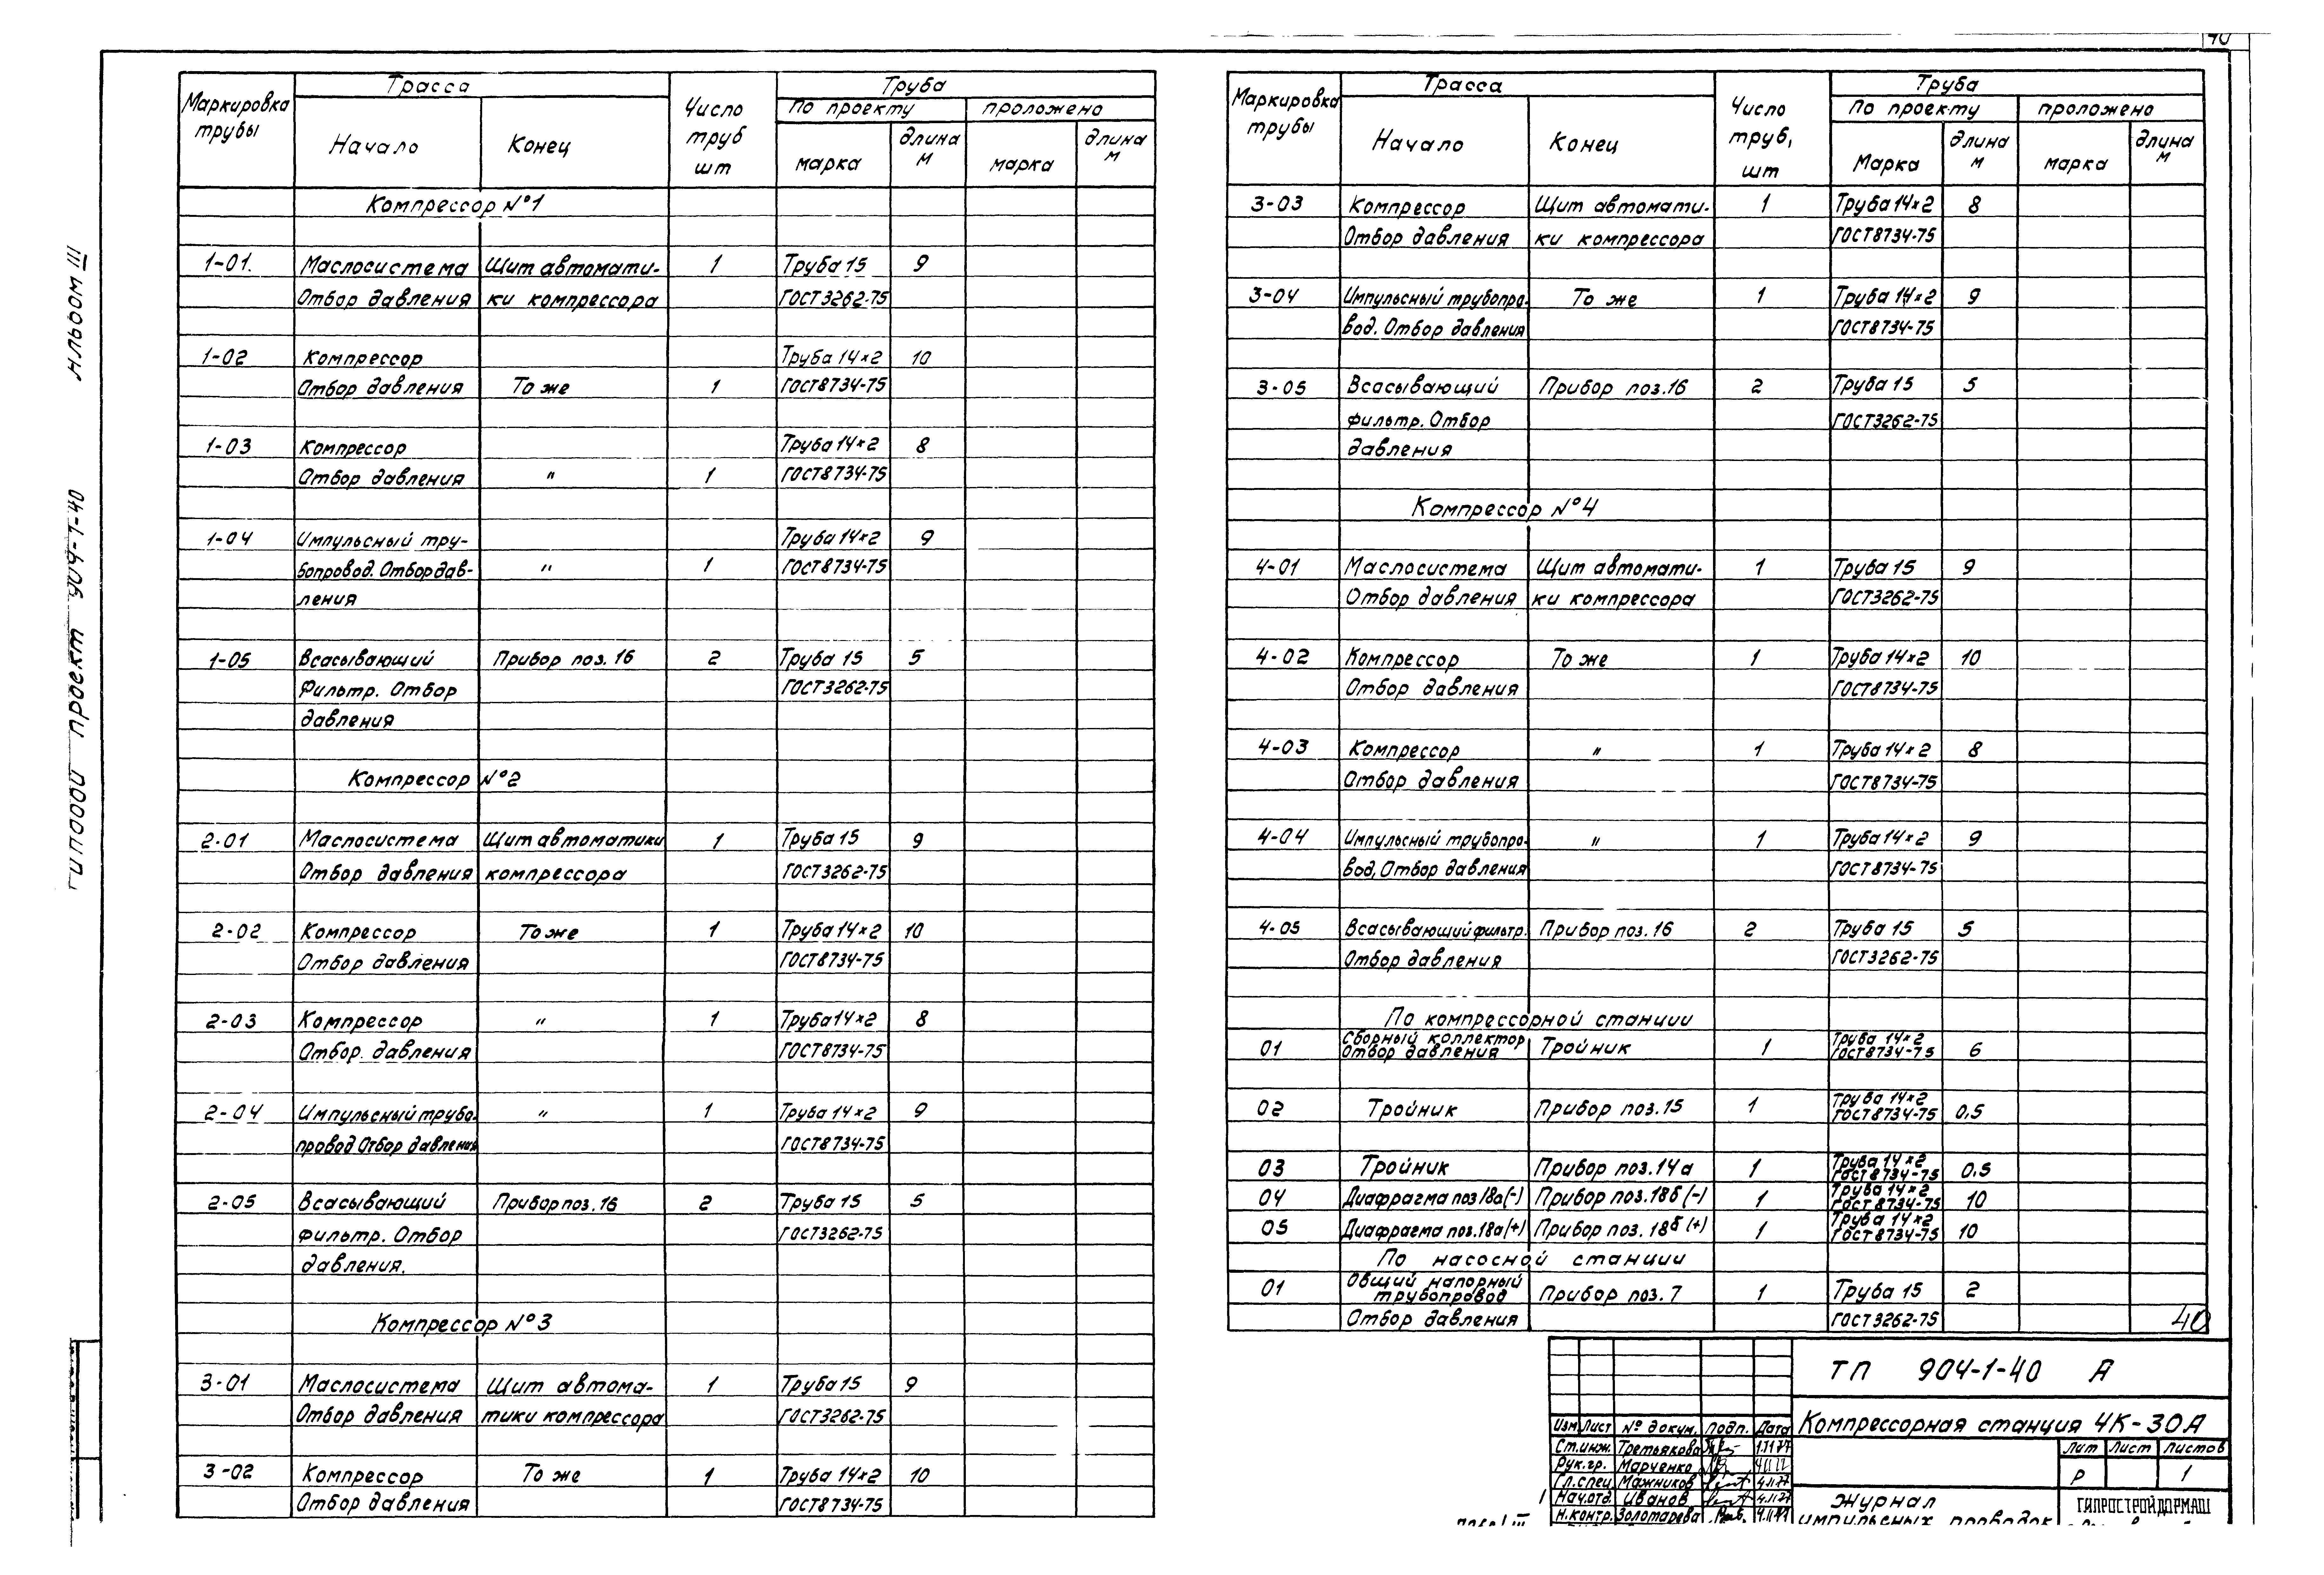 40
Альбом III
Типовой проект 904-1-40
Маркировка трубы | Трасса | Число труб шт | Труба
Начало | Конец | По проекту | проложено
марка | длина м | марка | длина м
Компрессор №1
1-01. | Маслосистема | Щит автомати- | 1 | Труба 15 | 9
Отбор давления | ки компрессора | ГОСТ3262-75
1-02 | Компрессор | Труба 14×2 | 10
Отбор давления | То же | 1 | ГОСТ8734-75
1-03 | Компрессор | Труба 14×2 | 8
Отбор давления | " | 1 | ГОСТ8734-75
1-04 | Импульсный тру- | Труба 14×2 | 9
бопровод. Отбор дав- | " | 1 | ГОСТ8734-75
ления
1-05 | Всасывающий | Прибор поз. 16 | 2 | Труба 15 | 5
Фильтр. Отбор | ГОСТ3262-75
давления
Компрессор №2
2-01 | Маслосистема | Щит автоматики | 1 | Труба 15 | 9
Отбор давления | компрессора | ГОСТ3262-75
2-02 | Компрессор | То же | 1 | Труба 14×2 | 10
Отбор давления | ГОСТ8734-75
2-03 | Компрессор | " | 1 | Труба 14×2 | 8
Отбор. давления | ГОСТ8734-75
2-04 | Импульсный трубо- | " | 1 | Труба 14×2 | 9
провод Отбор давления | ГОСТ8734-75
2-05 | Всасывающий | Прибор поз. 16 | 2 | Труба 15 | 5
фильтр. Отбор | ГОСТ3262-75
давления.
Компрессор №3
3-01 | Маслосистема | Щит автома- | 1 | Труба 15 | 9
Отбор давления | тики компрессора | ГОСТ3262-75
3-02 | Компрессор | То же | 1 | Труба 14×2 | 10
Отбор давления | ГОСТ8734-75
Маркировка трубы | Трасса | Число труб, шт | Труба
Начало | Конец | По проекту | проложено
Марка | длина м | марка | длина м
3-03 | Компрессор | Щит автомати- | 1 | Труба 14×2 | 8
Отбор давления | ки компрессора | ГОСТ8734-75
3-04 | Импульсный трубопро- | То же | 1 | Труба 14×2 | 9
вод. Отбор давления | ГОСТ8734-75
3-05 | Всасывающий | Прибор поз.16 | 2 | Труба 15 | 5
фильтр. Отбор | ГОСТ3262-75
давления
Компрессор №4
4-01 | Маслосистема | Щит автомати- | 1 | Труба 15 | 9
Отбор давления | ки компрессора | ГОСТ3262-75
4-02 | Компрессор | То же | 1 | Труба 14×2 | 10
Отбор давления | ГОСТ8734-75
4-03 | Компрессор | " | 1 | Труба 14×2 | 8
Отбор давления | ГОСТ8734-75
4-04 | Импульсный трубопро- | " | 1 | Труба 14×2 | 9
вод, Отбор давления | ГОСТ8734-75
4-05 | Всасывающий фильтр. | Прибор поз. 16 | 2 | Труба 15 | 5
Отбор давления | ГОСТ3262-75
По компрессорной станции
01 | Сборный коллектор Отбор давления | Тройник | 1 | Труба 14×2 ГОСТ8734-75 | 6
02 | Тройник | Прибор поз.15 | 1 | Труба 14×2 ГОСТ8734-75 | 0,5
03 | Тройник | Прибор поз.14а | 1 | Труба 14×2 ГОСТ8734-75 | 0,5
04 | Диафрагма поз 18а(-) | Прибор поз.18б (-) | 1 | Труба 14×2 ГОСТ8734-75 | 10
05 | Диафрагма поз.18а(+) | Прибор поз. 18б (+) | 1 | Труба 14×2 ГОСТ8734-75 | 10
По насосной станции
01 | Общий напорный трубопровод | Прибор поз. 7 | 1 | Труба 15 | 2
Отбор давления | ГОСТ3262-75
40
ТП 904-1-40 А
Компрессорная станция 4К-30А
Изм. Лист № докум. подп. Дата
Ст.инж. Третьякова
Рук.гр. Марченко
Гл.спец. Мажников 4.11.77
Нач.отд. Иванов 4.11.77
Н.контр. Золотарева
Лит Лист Листов
Р 1
Журнал
импульсных проводок
ГИПРОСТРОЙДОРМАШ